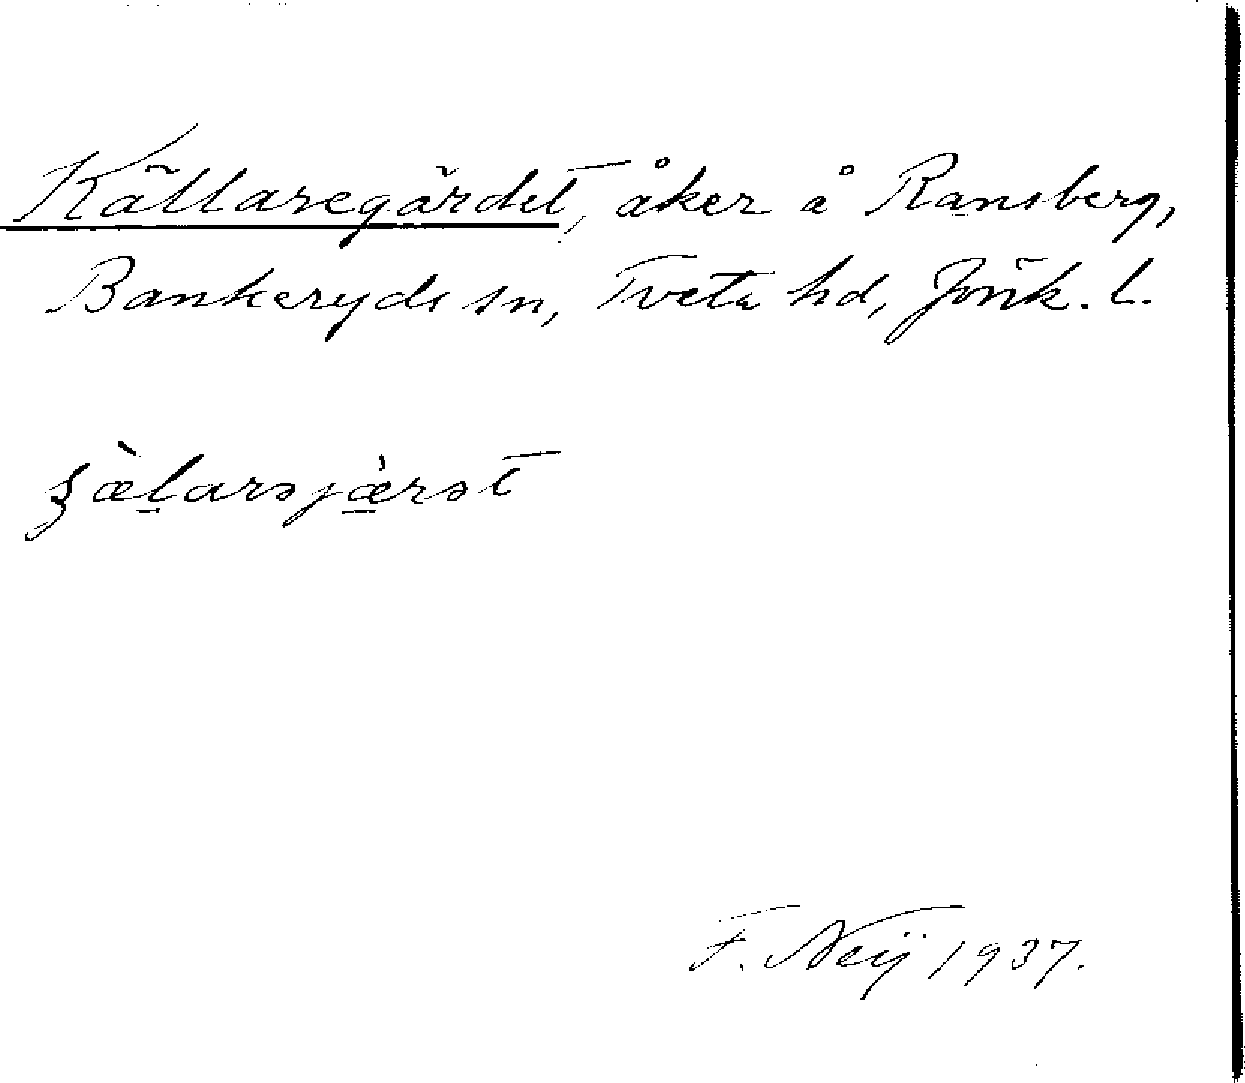 Källaregärdet, åker å Ransberg,
Bankeryds sn, Tveta hd, Jönk. L.
F. Neij 1937.